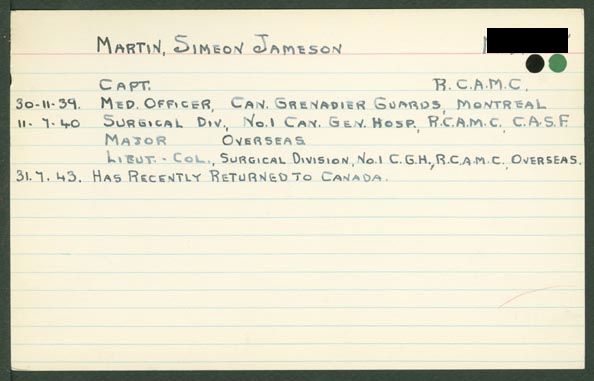 MARTIN, SIMEON JAMESON
CAPT. R.C.A.M.C.
30-11-39. MED. OFFICER, CAN. GRENADIER GUARDS, MONTREAL
11-7-40 SURGICAL DIV., NO.1 CAN. GEN. HOSP., R.C.A.M.C., C.A.S.F.
MAJOR OVERSEAS
LIEUT.-COL., SURGICAL DIVISION, NO.1 C.G.H., R.C.A.M.C. OVERSEAS.
31.7.43. HAS RECENTLY RETURNED TO CANADA.